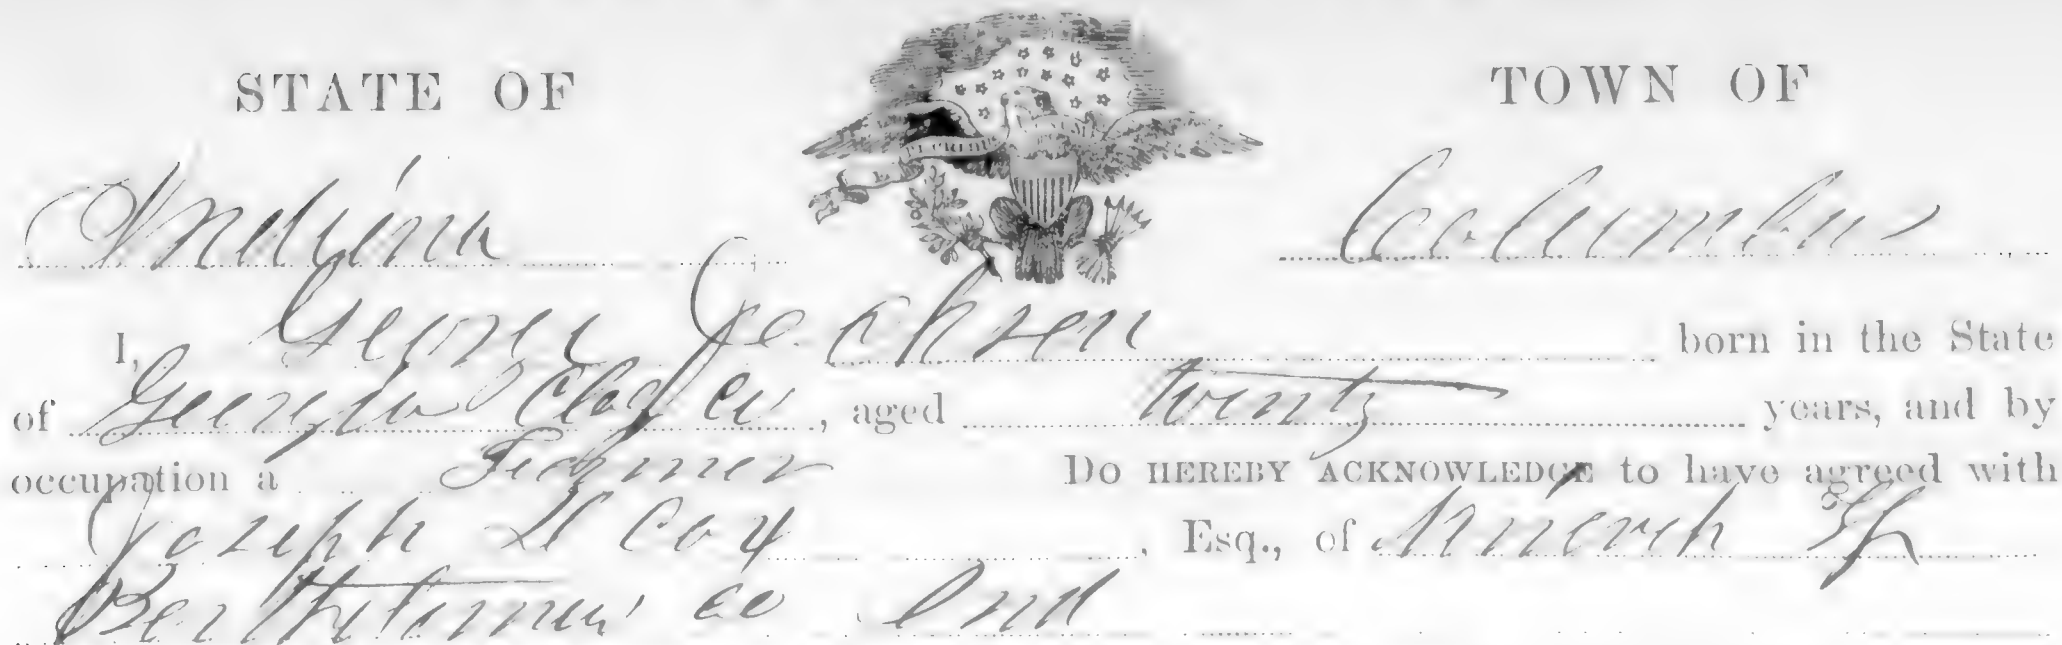 STATE OF TOWN OF
Indiana Columbus
I, George Jackson born in the State
of Georgia Clay Co, aged Twenty years, and by
occupation a Farmer Do HEREBY ACKNOWLEDGE to have agreed with
Joseph Cox, Esq., of
Bartholomew Co Ind